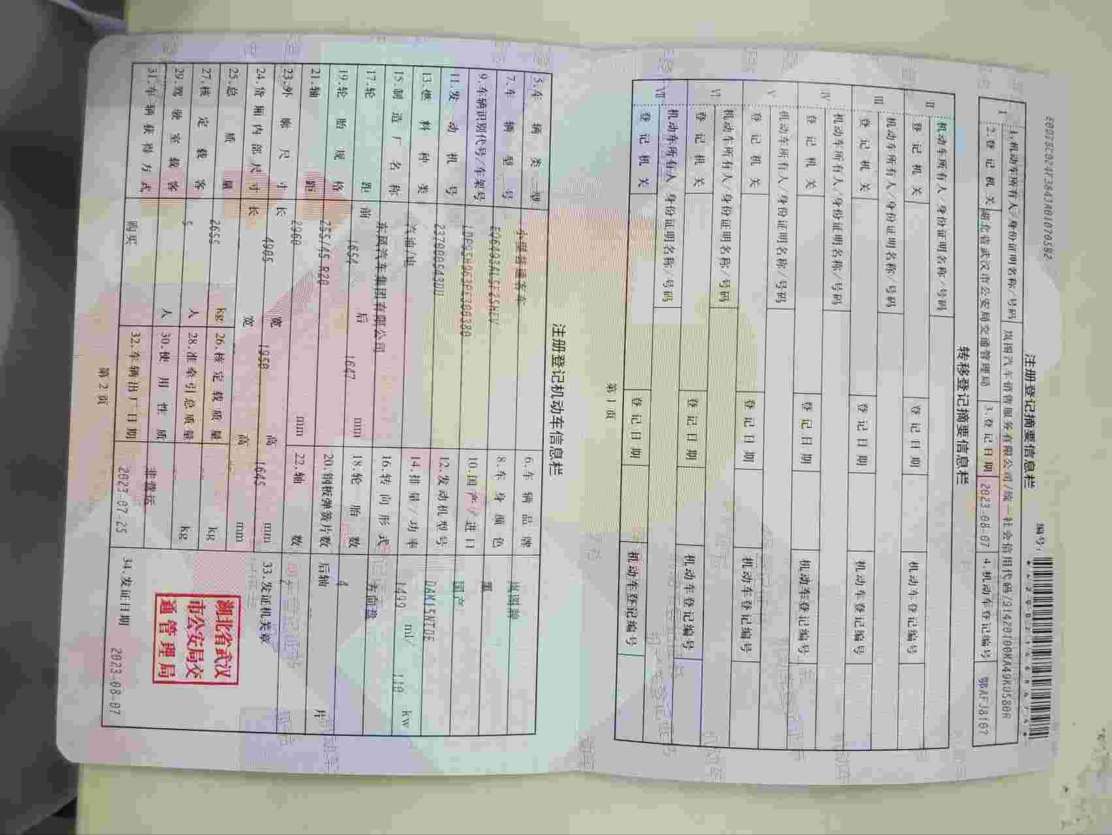 注册登记摘要信息栏
编号:
1.机动车所有人/身份证明名称/号码 岚图汽车销售服务有限公司/统一社会信用代码/
2.登记机关 湖北省武汉市公安局交通管理局 3.登记日期 2023-08-07 4.机动车登记编号 鄂AFJ8167
转移登记摘要信息栏
II 机动车所有人/身份证明名称/号码
登记机关 登记日期 机动车登记编号
III 机动车所有人/身份证明名称/号码
登记机关 登记日期 机动车登记编号
IV 机动车所有人/身份证明名称/号码
登记机关 登记日期 机动车登记编号
V 机动车所有人/身份证明名称/号码
登记机关 登记日期 机动车登记编号
VI 机动车所有人/身份证明名称/号码
登记机关 登记日期 机动车登记编号
VII 机动车所有人/身份证明名称/号码
登记机关 登记日期 机动车登记编号
第 1 页
注册登记机动车信息栏
5.车辆类型 小型普通客车 6.车辆品牌 岚图牌
7.车辆型号 8.车身颜色 黑
9.车辆识别代号/车架号 10.国产/进口 国产
11.发动机号 12.发动机型号 DAM15NTDE
13.燃料种类 汽油/电 14.排量/功率 1499 ml/ 110 kw
15.制造厂名称 东风汽车集团有限公司 16.转向形式 方向盘
17.轮距 前 1654 后 1647 mm 18.轮胎数 4
19.轮胎规格 255/45 R20 20.钢板弹簧片数 后轴 片
21.轴距 2960 mm 22.轴数
23.外廓尺寸 长 4905 宽 1950 高 1645 mm 33.发证机关章
24.货厢内部尺寸 长 宽 高 mm
25.总质量 2655 kg 26.核定载质量 kg
27.核定载客 5 人 28.准牵引总质量 kg
29.驾驶室载客 人 30.使用性质 非营运
31.车辆获得方式 购买 32.车辆出厂日期 2023-07-25 34.发证日期 2023-08-07
湖北省武汉
市公安局交
通管理局
第 2 页